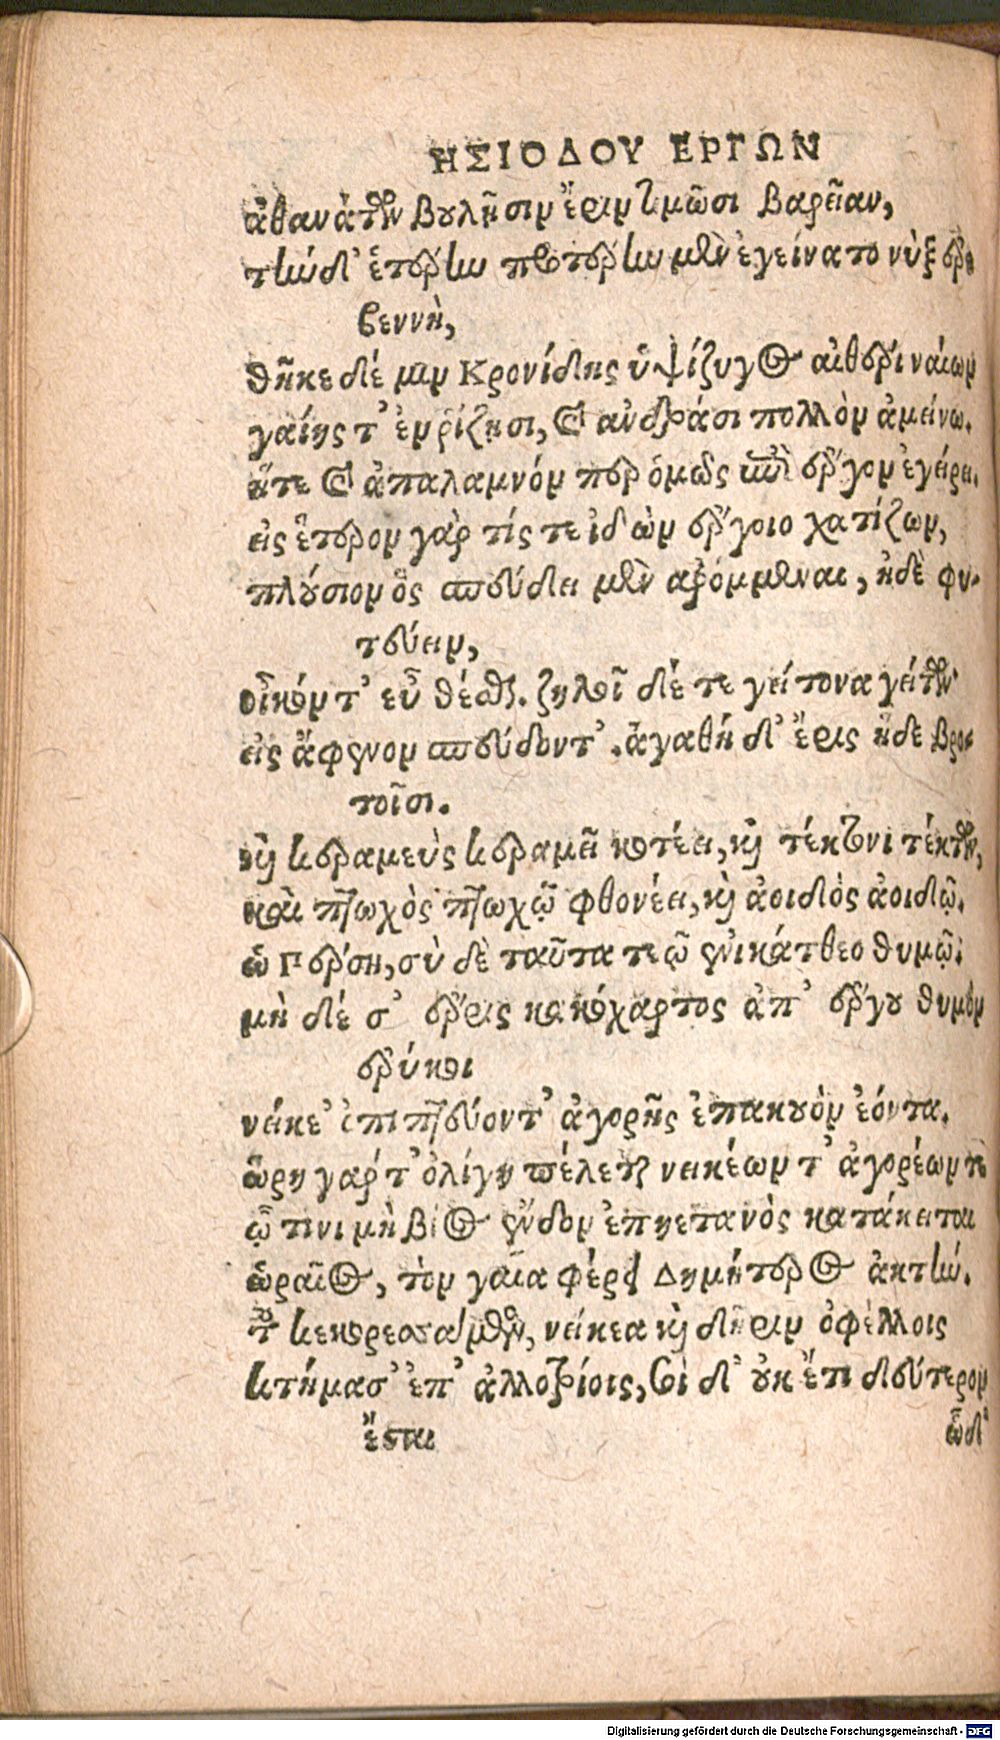 ΗΣΙΟΔΟΥ ΕΡΓΩΝ
ἀθανάτων βουλῇσιν ἔριν τιμῶσι βαρεῖαν,
τὴν δ' ἑτέρην προτέρην μὲν ἐγείνατο νὺξ ἐρε
βεννὴ,
θῆκε δέ μιν Κρονίδης ὑψίζυγος αἰθέρι ναίων
γαίης τ' ἐν ῥίζῃσι, καὶ ἀνδράσι πολλὸν ἀμείνω.
ἥτε καὶ ἀπαλαμνόν περ ὁμῶς ἐπὶ ἔργον ἐγείρει.
εἰς ἕτερον γὰρ τίς τε ἰδὼν ἔργοιο χατίζων,
πλούσιον ὃς σπεύδει μὲν ἀρόμμεναι, ἠδὲ φυ-
τεύειν,
οἶκόν τ' εὖ θέσθαι. ζηλοῖ δέ τε γείτονα γείτων
εἰς ἄφενον σπεύδοντ'. ἀγαθὴ δ' ἔρις ἥδε βρο-
τοῖσι.
καὶ κεραμεὺς κεραμεῖ κοτέει, καὶ τέκτονι τέκτων,
καὶ πτωχὸς πτωχῷ φθονέει, καὶ ἀοιδὸς ἀοιδῷ.
ὦ Πέρση, σὺ δὲ ταῦτα τεῷ ἐνικάτθεο θυμῷ.
μὴ δέ σ' ἔρις κακόχαρτος ἀπ' ἔργου θυμὸν
ἐρύκοι
νείκε' ὀπιπτεύοντ' ἀγορῆς ἐπακουὸν ἐόντα.
ὥρη γάρ τ' ὀλίγη πέλεται νεικέων τ' ἀγορέων τε
ᾧ τινι μὴ βίος ἔνδον ἐπηετανὸς κατάκειται
ὡραῖος, τὸν γαῖα φέρει Δημήτερος ἀκτήν.
τοῦ κεκορεσσάμενος, νείκεα καὶ δῆριν ὀφέλλοις
κτήμασ' ἐπ' ἀλλοτρίοις, σοὶ δ' οὐκ ἔτι δεύτερον
ἔσται ὧδ'
Digitalisierung gefördert durch die Deutsche Forschungsgemeinschaft - DFG